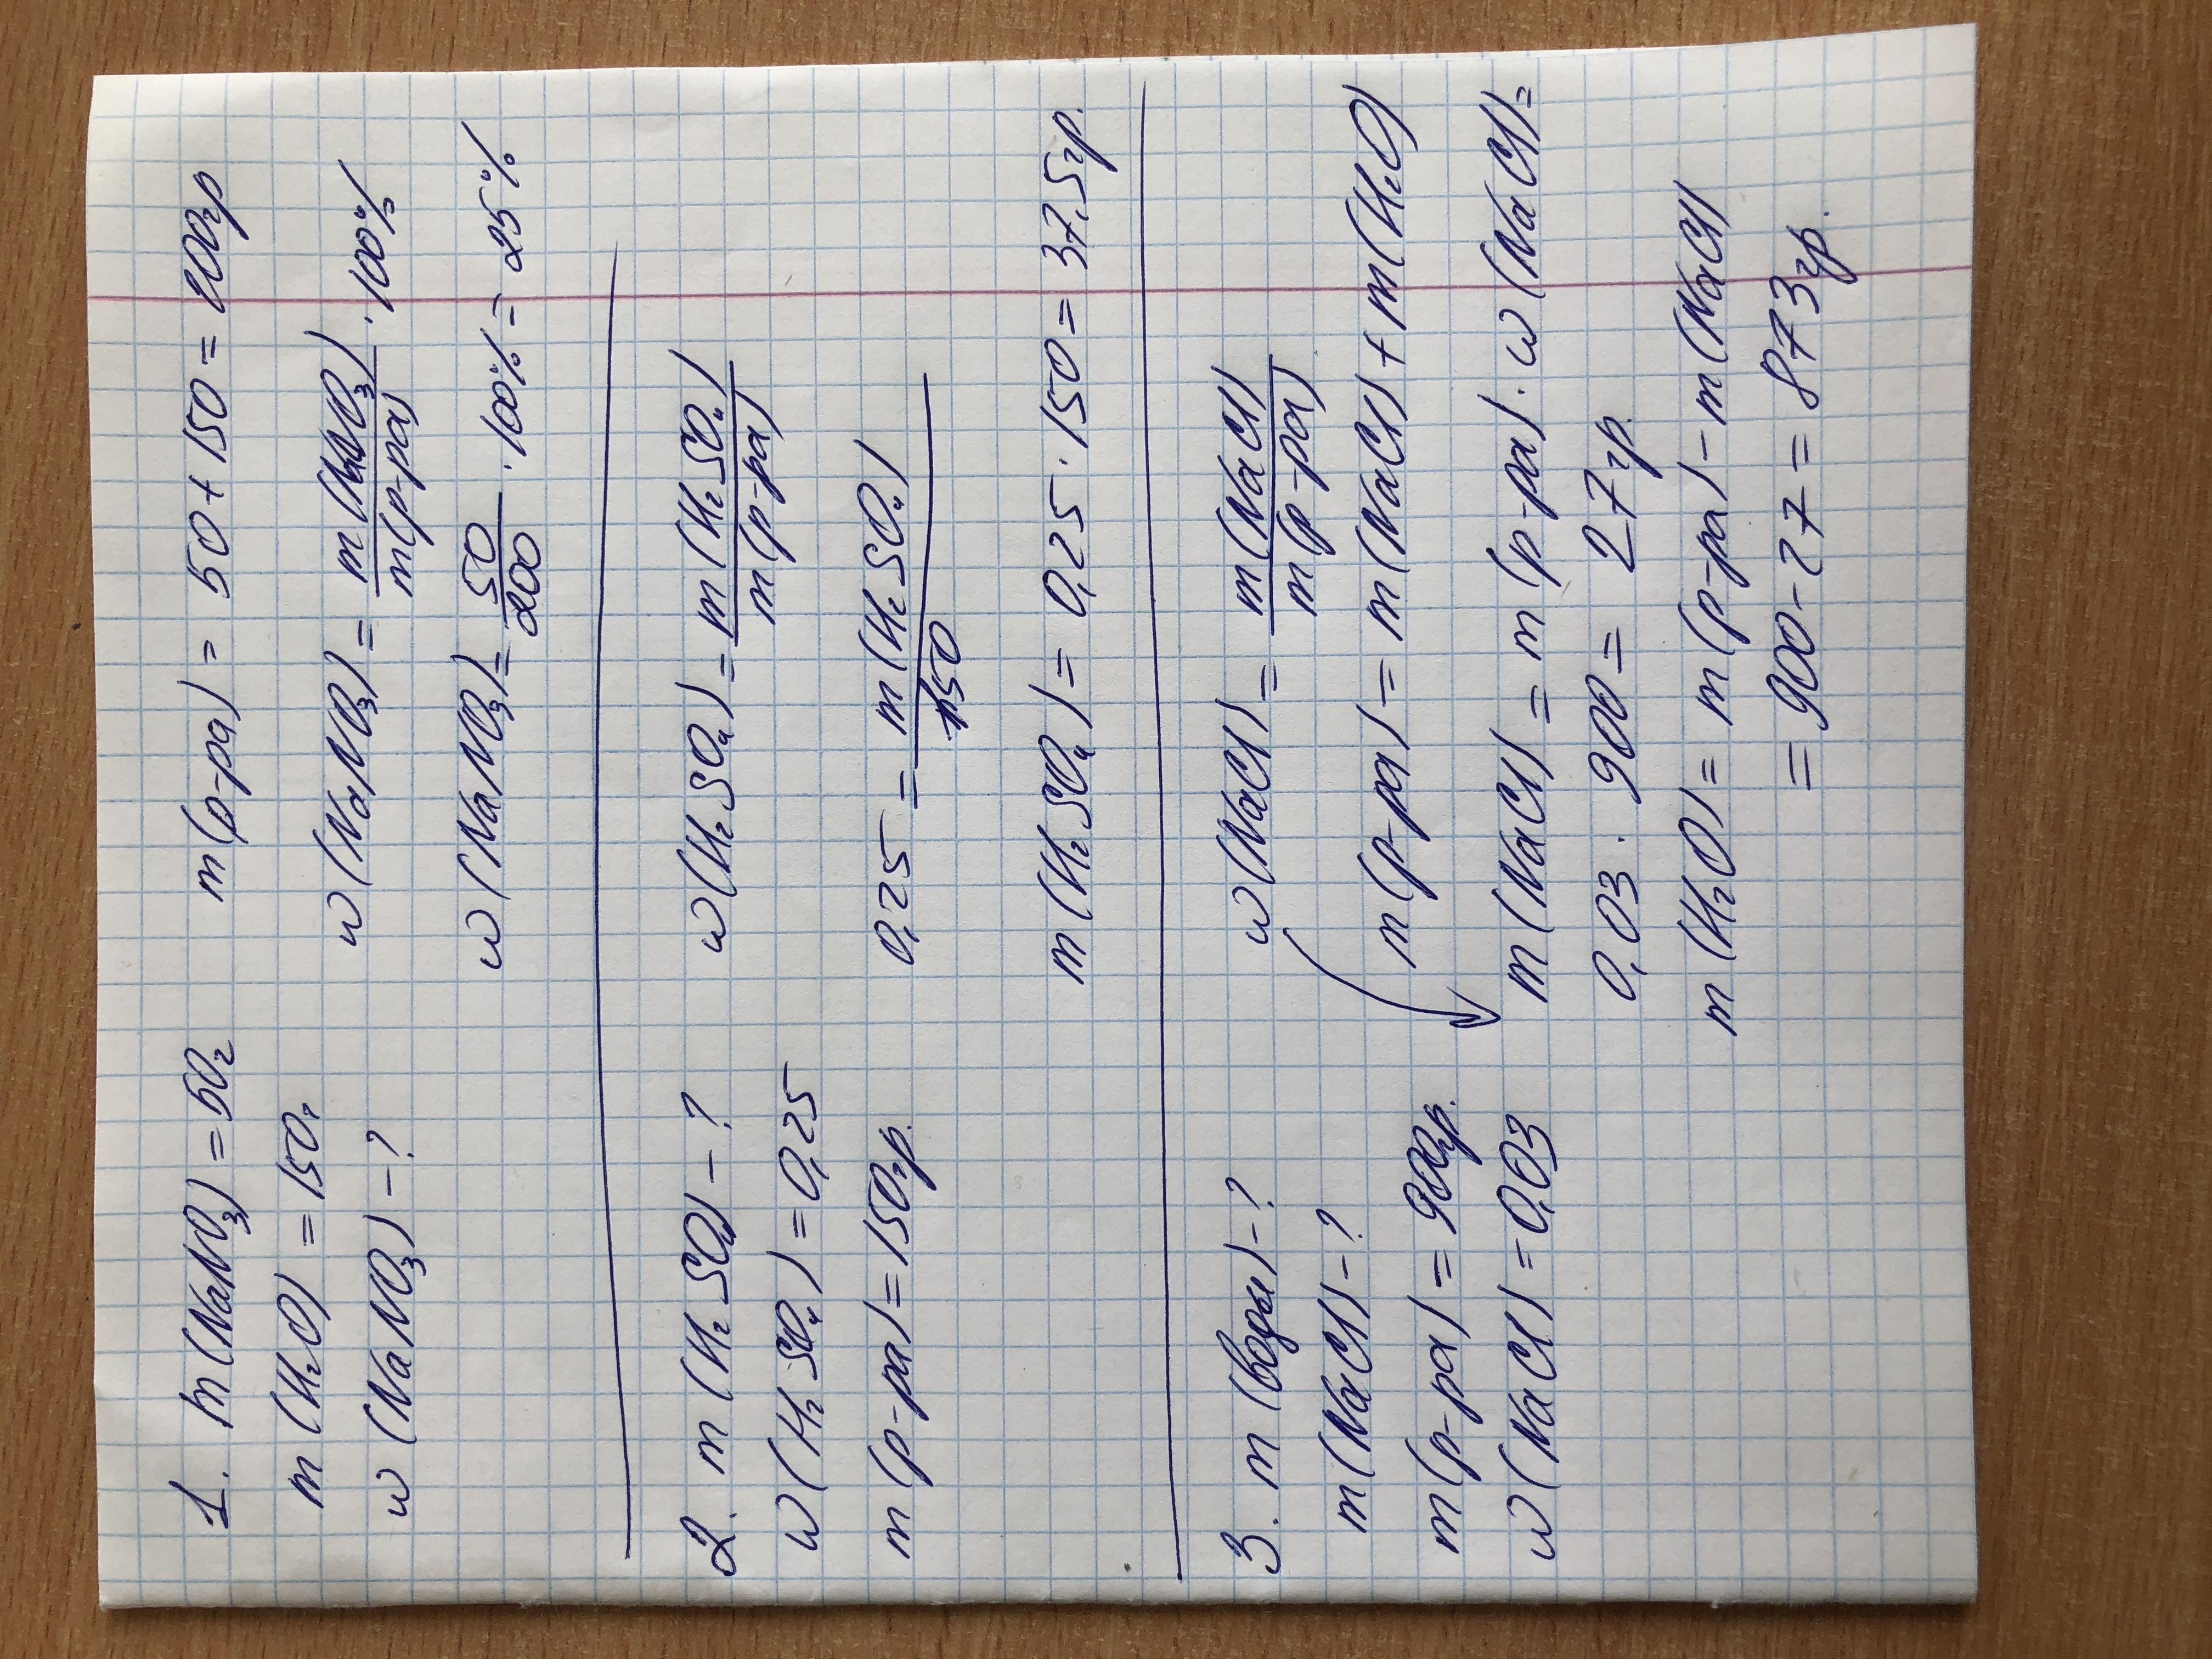 1. m(NaNO₃) = 50г
m(H₂O) = 150г
w(NaNO₃) - ?
m(р-ра) = 50 + 150 = 200гр
w(NaNO₃) = m(NaNO₃) / m(р-ра) · 100%
w(NaNO₃) = 50 / 200 · 100% = 25%
2. m(H₂SO₄) - ?
w(H₂SO₄) = 0,25
m(р-ра) = 150гр.
w(H₂SO₄) = m(H₂SO₄) / m(р-ра)
0,25 = m(H₂SO₄) / 150
m(H₂SO₄) = 0,25 · 150 = 37,5гр.
3. m(воды) - ?
m(NaCl) - ?
m(р-ра) = 900гр.
w(NaCl) = 0,03
w(NaCl) = m(NaCl) / m(р-ра)
m(р-ра) = m(NaCl) + m(H₂O)
m(NaCl) = m(р-ра) · w(NaCl) =
0,03 · 900 = 27гр.
m(H₂O) = m(р-ра) - m(NaCl)
= 900 - 27 = 873гр.